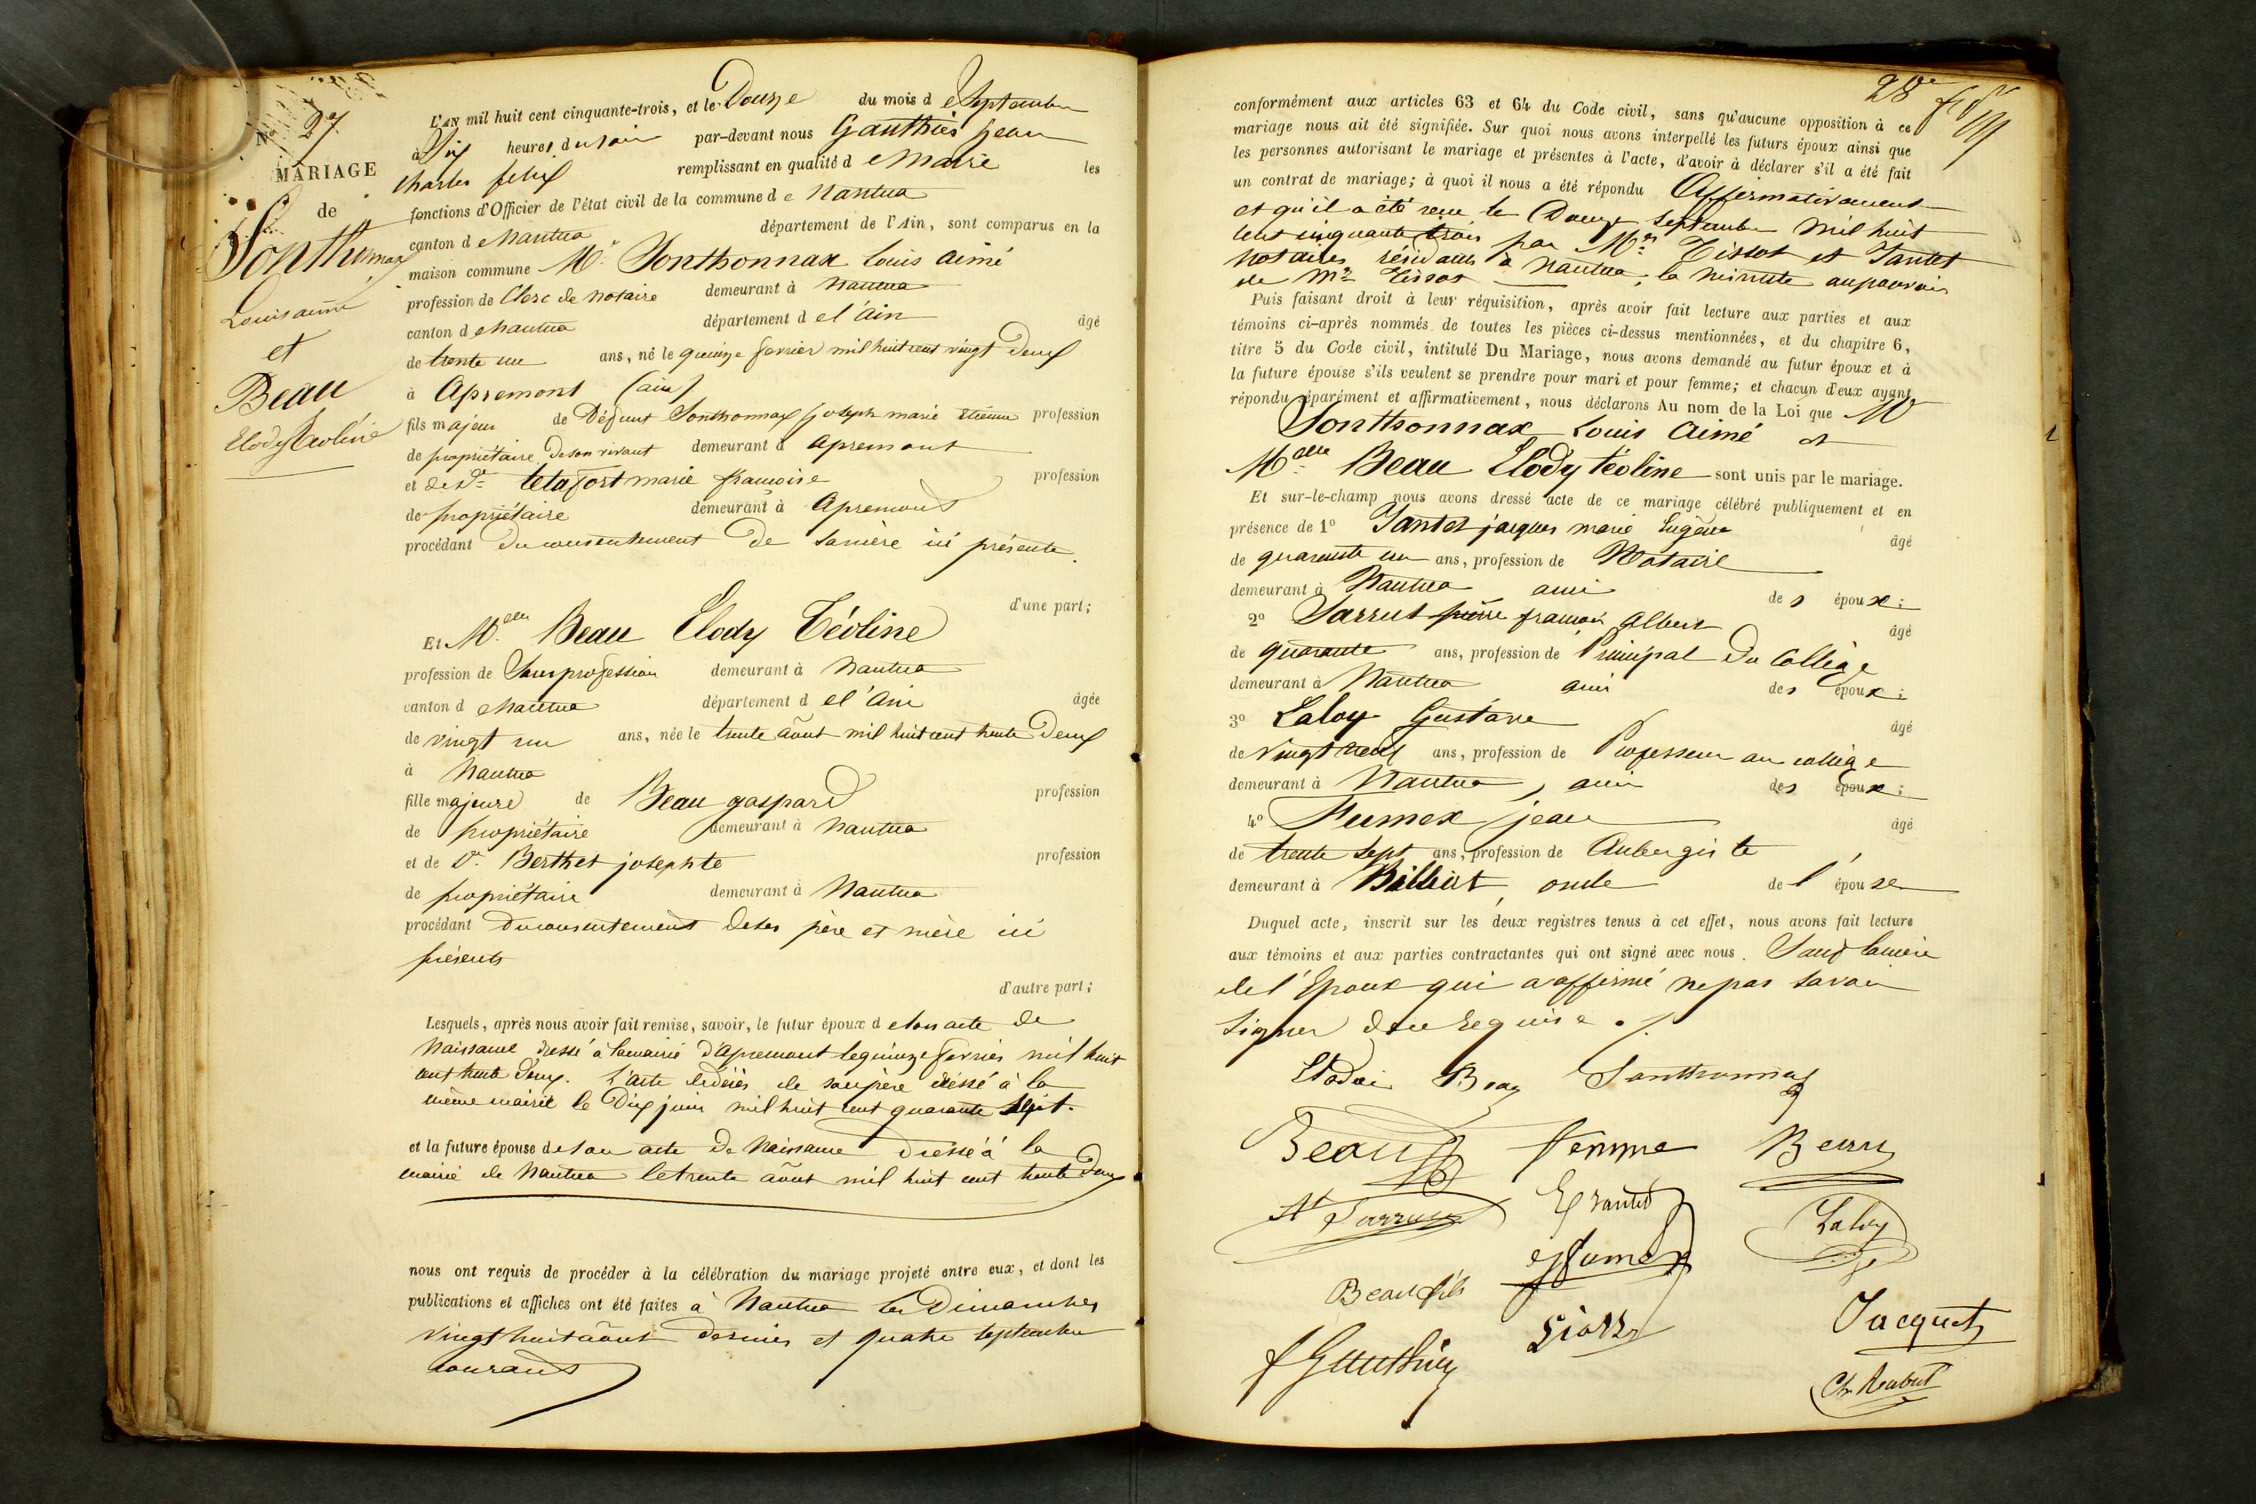 N° 27
MARIAGE
de
Sonthonnax
Louis aimé
et
Beau
Elody Téoline
L'AN mil huit cent cinquante-trois, et le Douze du mois de Septembre
à Six heures du soir par-devant nous Gauthier Jean
Charles felix remplissant en qualité de Maire les
fonctions d'Officier de l'état civil de la commune de Nantua
canton de Nantua département de l'Ain, sont comparus en la
maison commune Mr. Sonthonnax Louis aimé
profession de Clerc de notaire demeurant à Nantua
canton de Nantua département de l'ain âgé
de trente un ans, né le quinze février mil huit cent vingt deux
à Apremont (ain)
fils majeur de Défunt Sonthonnax joseph marie etienne profession
de propriétaire de son vivant demeurant à apremont
et de de marie françoise profession
de propriétaire demeurant à Apremont
procédant du consentement de sa mère ici présente.
d'une part;
Et Melle Beau Elody Téoline
profession de Sans profession demeurant à Nantua
canton de Nantua département de l'ain âgée
de vingt un ans, née le trente août mil huit cent trente Deux
à Nantua
fille majeure de Beau gaspard profession
de propriétaire demeurant à Nantua
et de De. Berthet josephte profession
de propriétaire demeurant à Nantua
procédant du consentement de ses père et mère ici
présents
d'autre part;
Lesquels, après nous avoir fait remise, savoir, le futur époux de son acte de
Naissance dressé à la mairie d'apremont le quinze février mil huit
cent trente deux. L'acte de décès de son père dressé à la
même mairie le Dix juin mil huit cent quarante sept.
et la future épouse de son acte de Naissance dressé à la
mairie de Nantua le trente août mil huit cent trente Deux
nous ont requis de procéder à la célébration du mariage projeté entre eux, et dont les
publications et affiches ont été faites à Nantua les Dimanches
vingt huit août dernier et quatre septembre
courant
28
conformément aux articles 63 et 64 du Code civil, sans qu'aucune opposition à ce
mariage nous ait été signifiée. Sur quoi nous avons interpellé les futurs époux ainsi que
les personnes autorisant le mariage et présentes à l'acte, d'avoir à déclarer s'il a été fait
un contrat de mariage; à quoi il nous a été répondu Affirmativement
et qu'il a été reçu le Douze septembre mil huit
cent cinquante trois par Mes Tissot et Jantet
notaires résidants à Nantua; la minute au pouvoir
de Me Tissot
Puis faisant droit à leur réquisition, après avoir fait lecture aux parties et aux
témoins ci-après nommés de toutes les pièces ci-dessus mentionnées, et du chapitre 6,
titre 5 du Code civil, intitulé Du Mariage, nous avons demandé au futur époux et à
la future épouse s'ils veulent se prendre pour mari et pour femme; et chacun d'eux ayant
répondu séparément et affirmativement, nous déclarons Au nom de la Loi que Mr
Sonthonnax Louis Aimé et
Melle Beau Elody Téoline sont unis par le mariage.
Et sur-le-champ nous avons dressé acte de ce mariage célébré publiquement et en
présence de 1° Jantet jacques marie Eugène âgé
de quarante un ans, profession de Notaire
demeurant à Nantua ami des époux;
2° Sarrut pierre françois albert âgé
de quarante ans, profession de Principal du Collège
demeurant à Nantua ami des époux;
3° Laloy Gustave âgé
de vingt neuf ans, profession de Professeur au collège
demeurant à Nantua, ami des époux;
4° Humex jean âgé
de trente sept ans, profession de Aubergiste
demeurant à Billiat, oncle de l'épouse
Duquel acte, inscrit sur les deux registres tenus à cet effet, nous avons fait lecture
aux témoins et aux parties contractantes qui ont signé avec nous. Sauf la mère
de l'Epoux qui a affirmé ne pas savoir
signer de ce requise.
Sonthonnax
Beau femme Beau
At Sarrut E Jantet Laloy
Beau fils
f Gauthier Jacquet